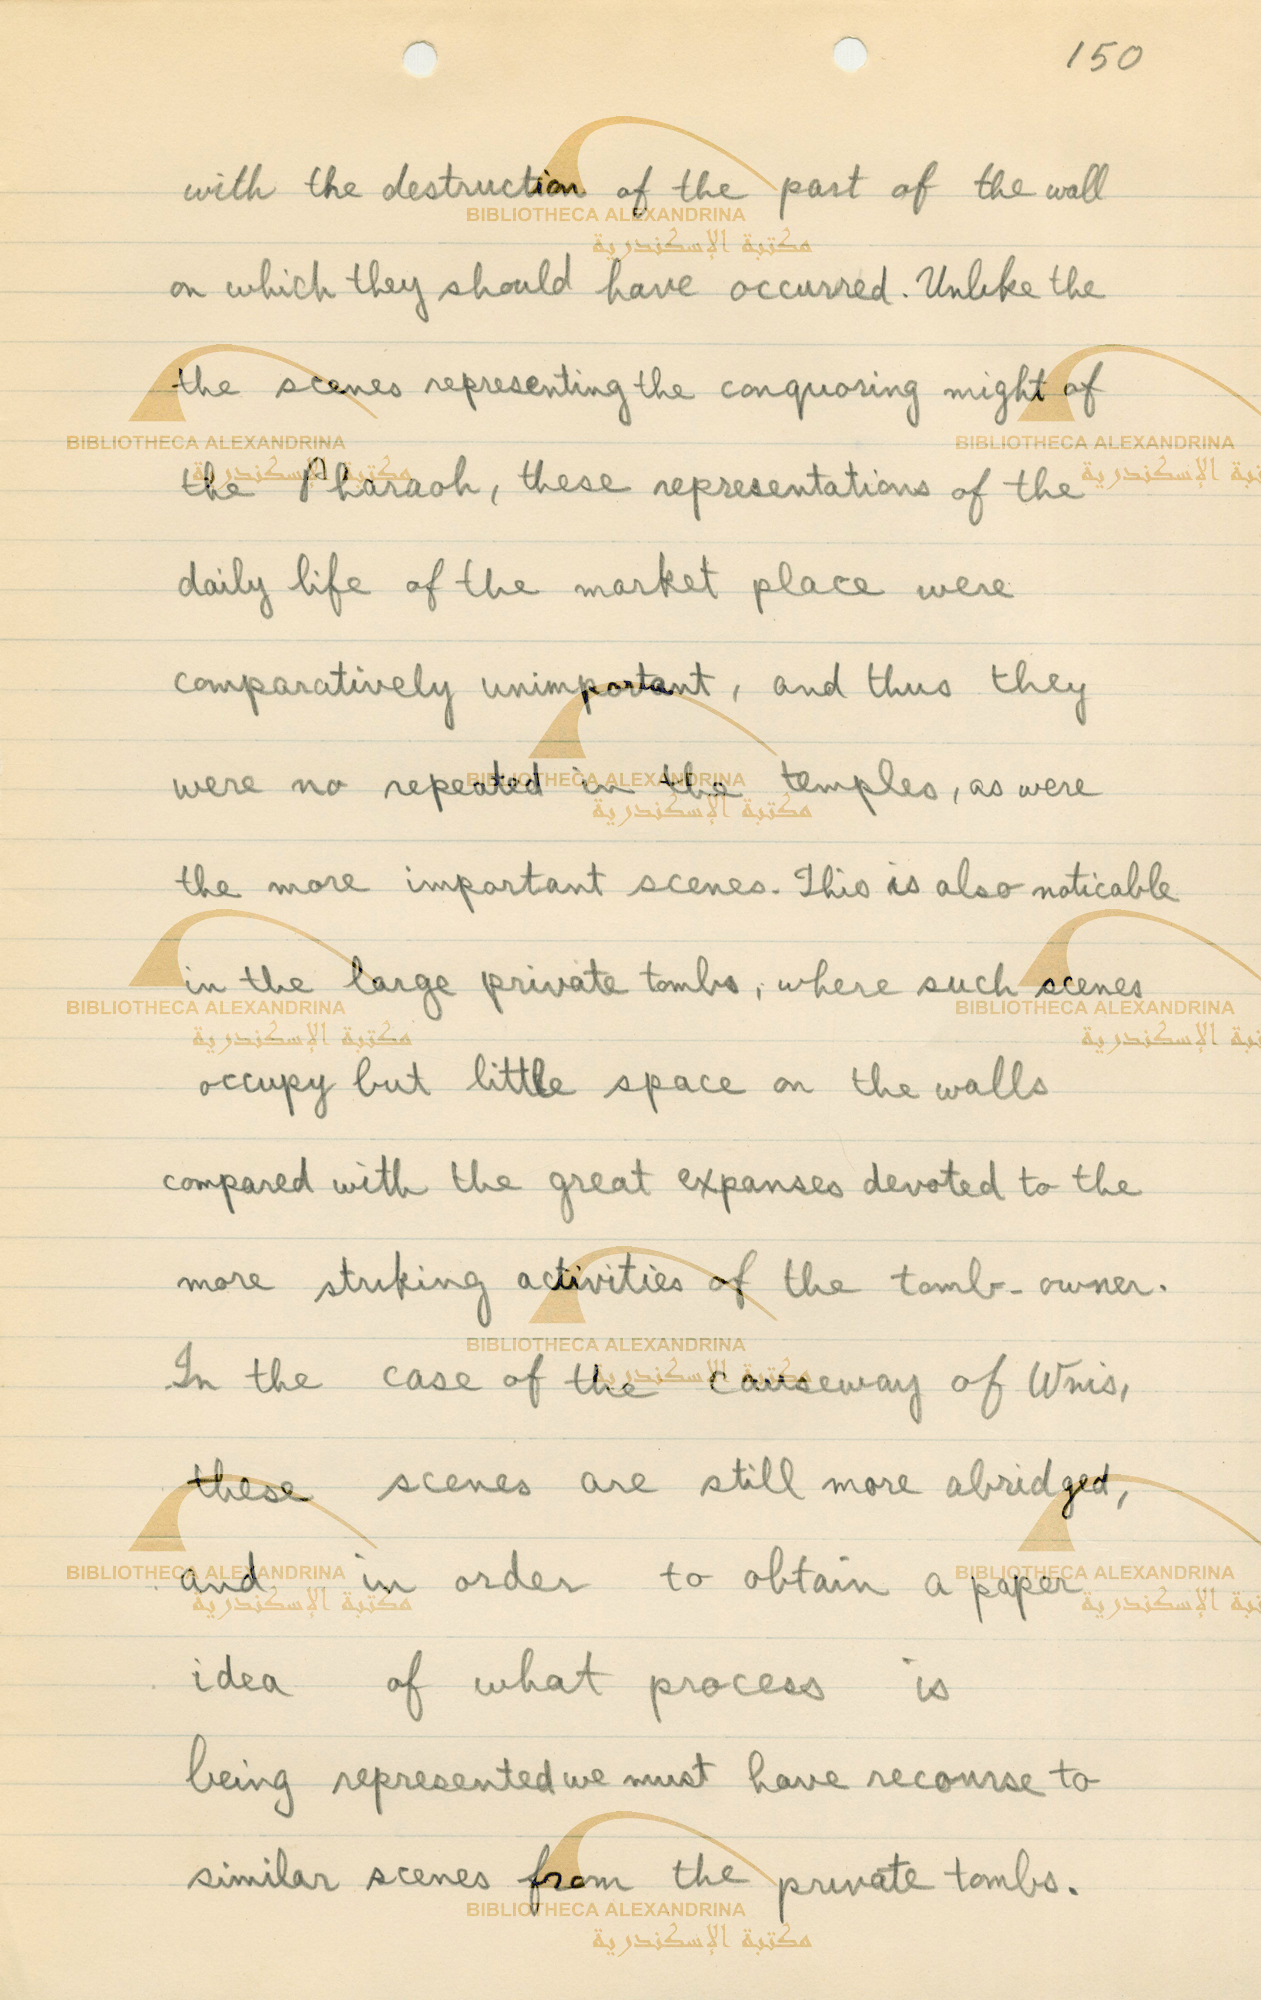 150
with the destruction of the part of the wall
on which they should have occurred. Unlike the
the scenes representing the conquoring might of
the Pharaoh, these representations of the
daily life of the market place were
comparatively unimportant, and thus they
were no repeated in the temples, as were
the more important scenes. This is also noticable
in the large private tombs, where such scenes
occupy but little space on the walls
compared with the great expanses devoted to the
more striking activities of the tomb-owner.
In the case of the causeway of Wnis,
these scenes are still more abridged,
and in order to obtain a paper
idea of what process is
being represented we must have recourse to
similar scenes from the private tombs.
BIBLIOTHECA ALEXANDRINA
مكتبة الإسكندرية